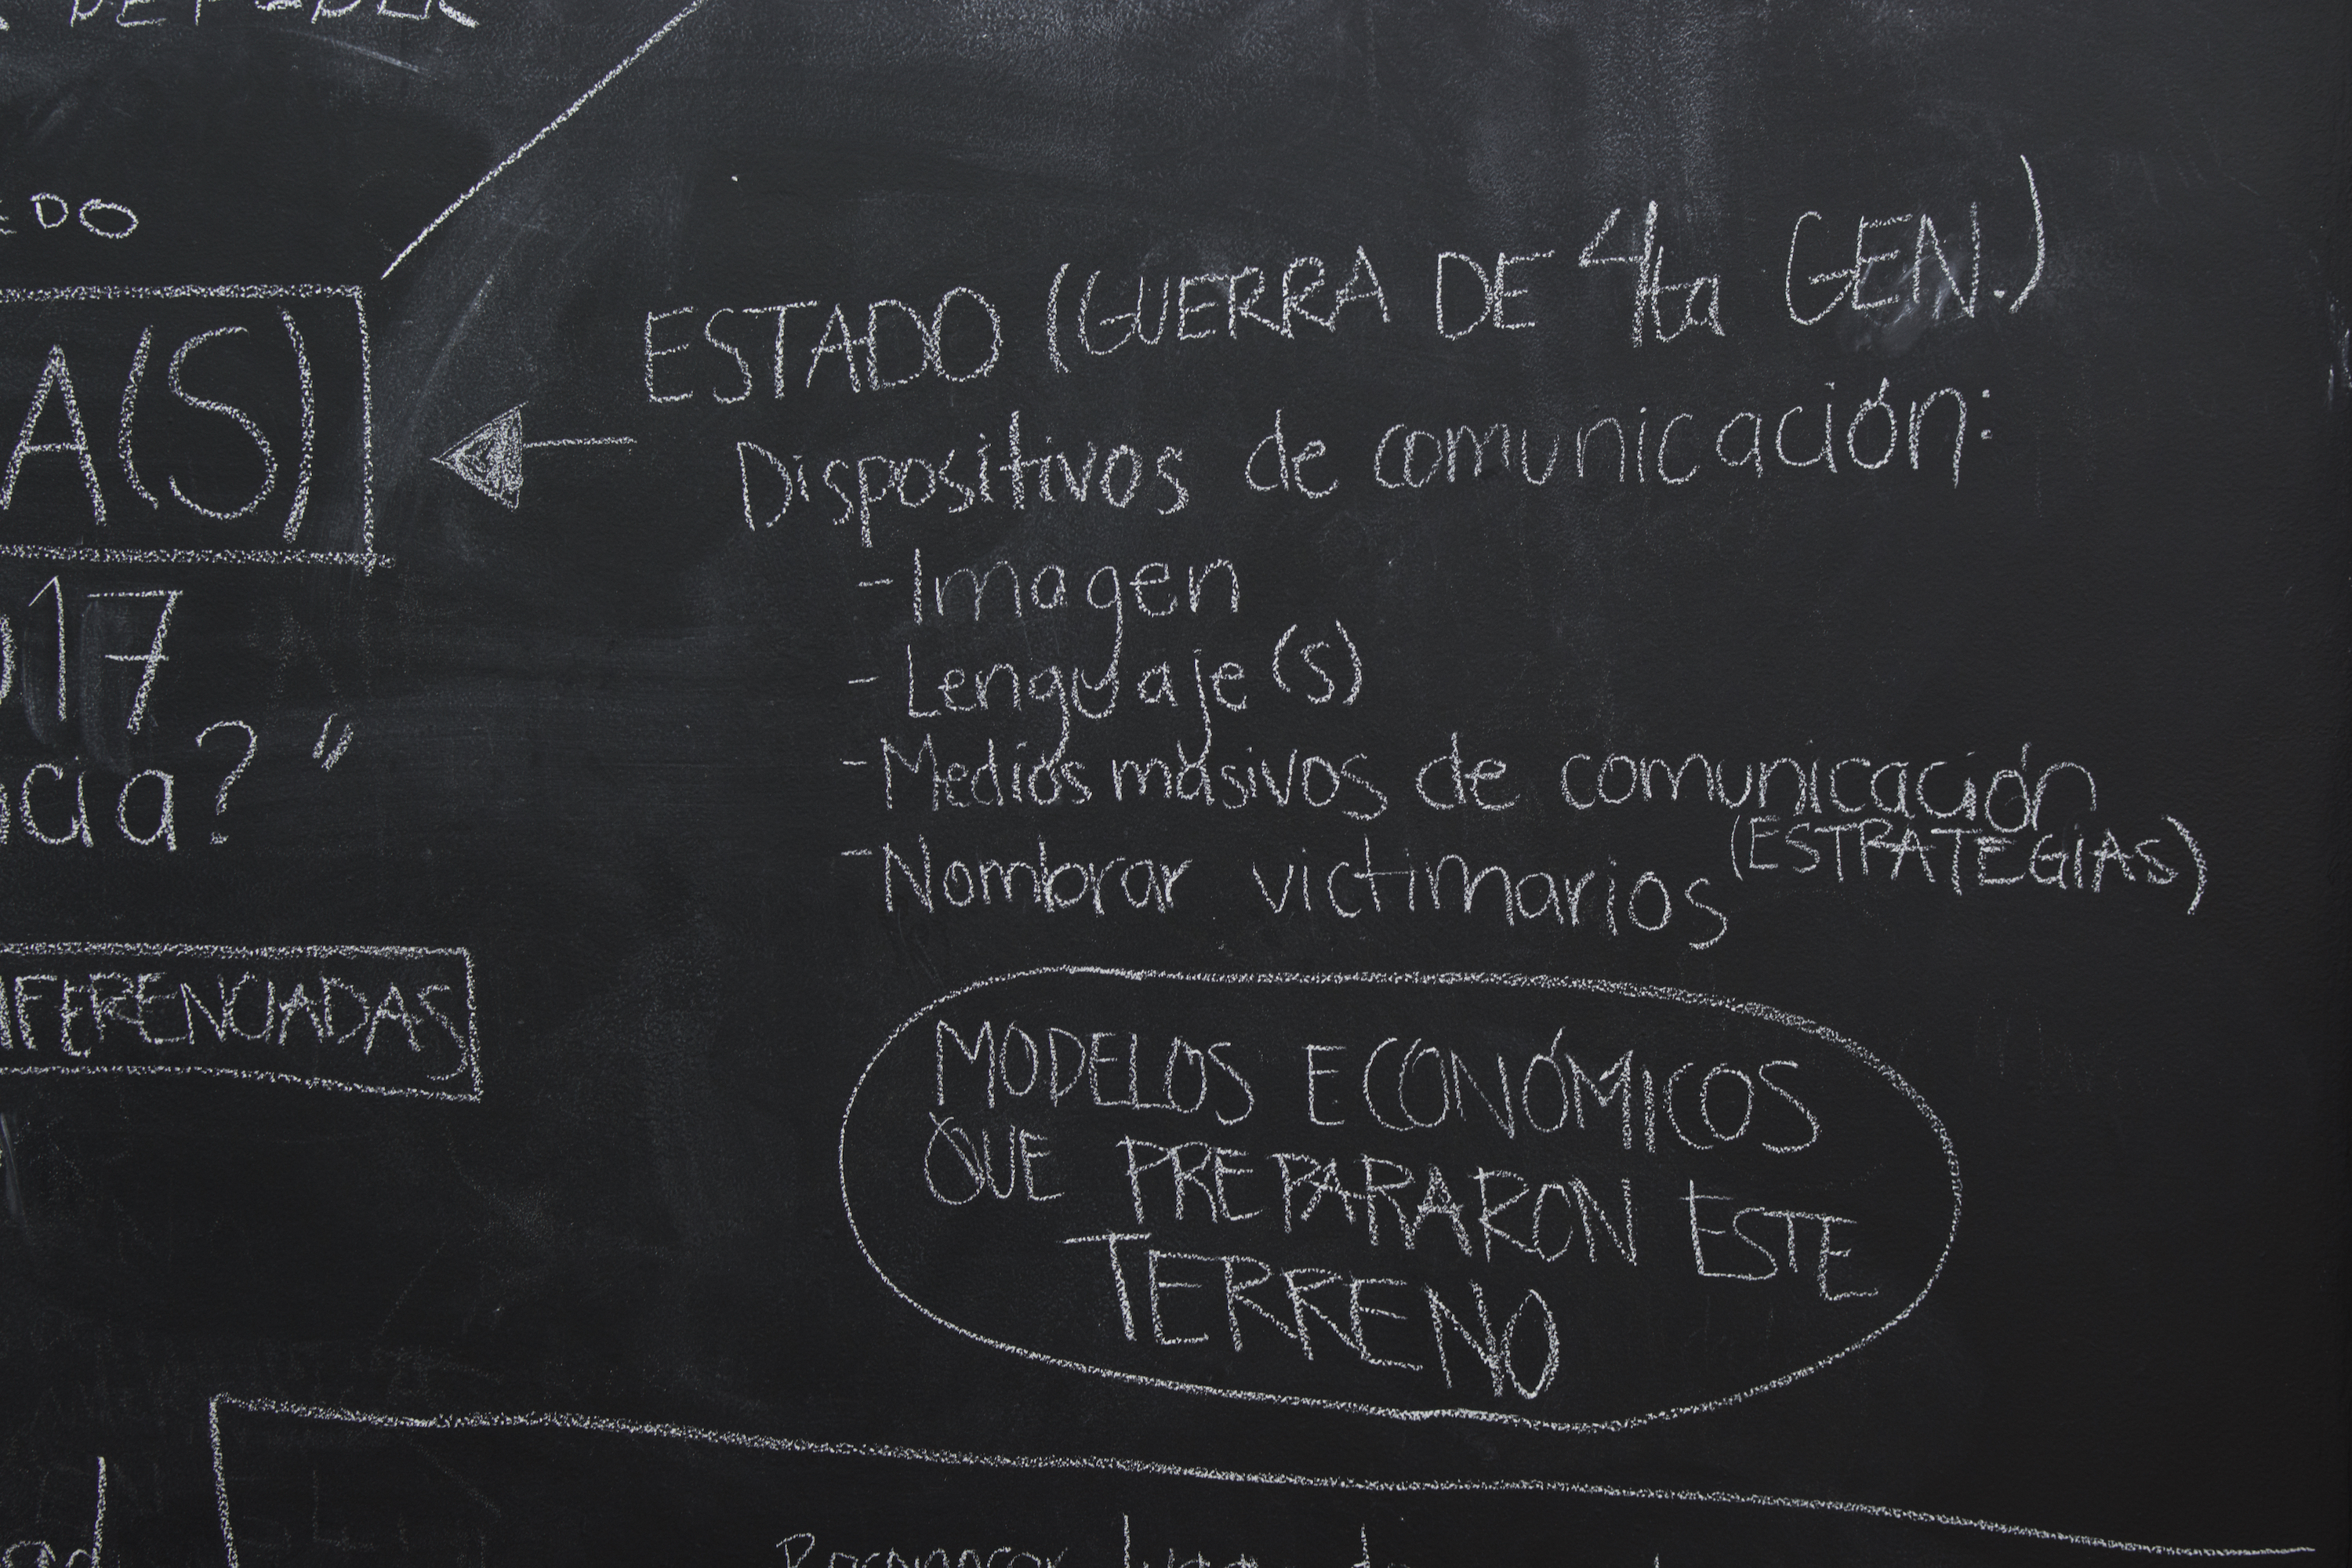 DE PODER
EDO
A(S)
017
ncia?"
IFERENCIADAS
ESTADO (GUERRA DE 4ta GEN.)
Dispositivos de comunicación:
- Imagen
- Lenguaje(s)
- Medios masivos de comunicación
(ESTRATEGIAS)
- Nombrar victimarios
MODELOS ECONÓMICOS
QUE PREPARARON ESTE
TERRENO
ad